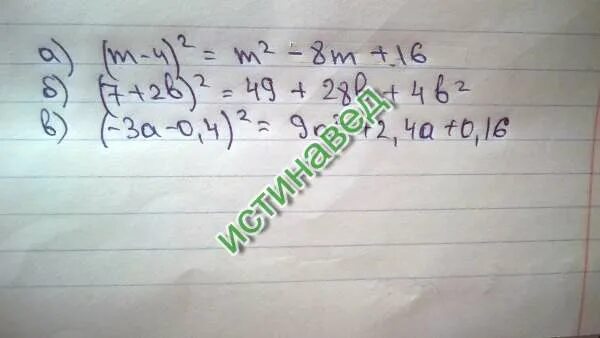 а) (m-4)² = m² - 8m + 16
б) (7+2b)² = 49 + 28b + 4b²
в) (-3a-0,4)² = 9a² + 2,4a + 0,16
истинавед